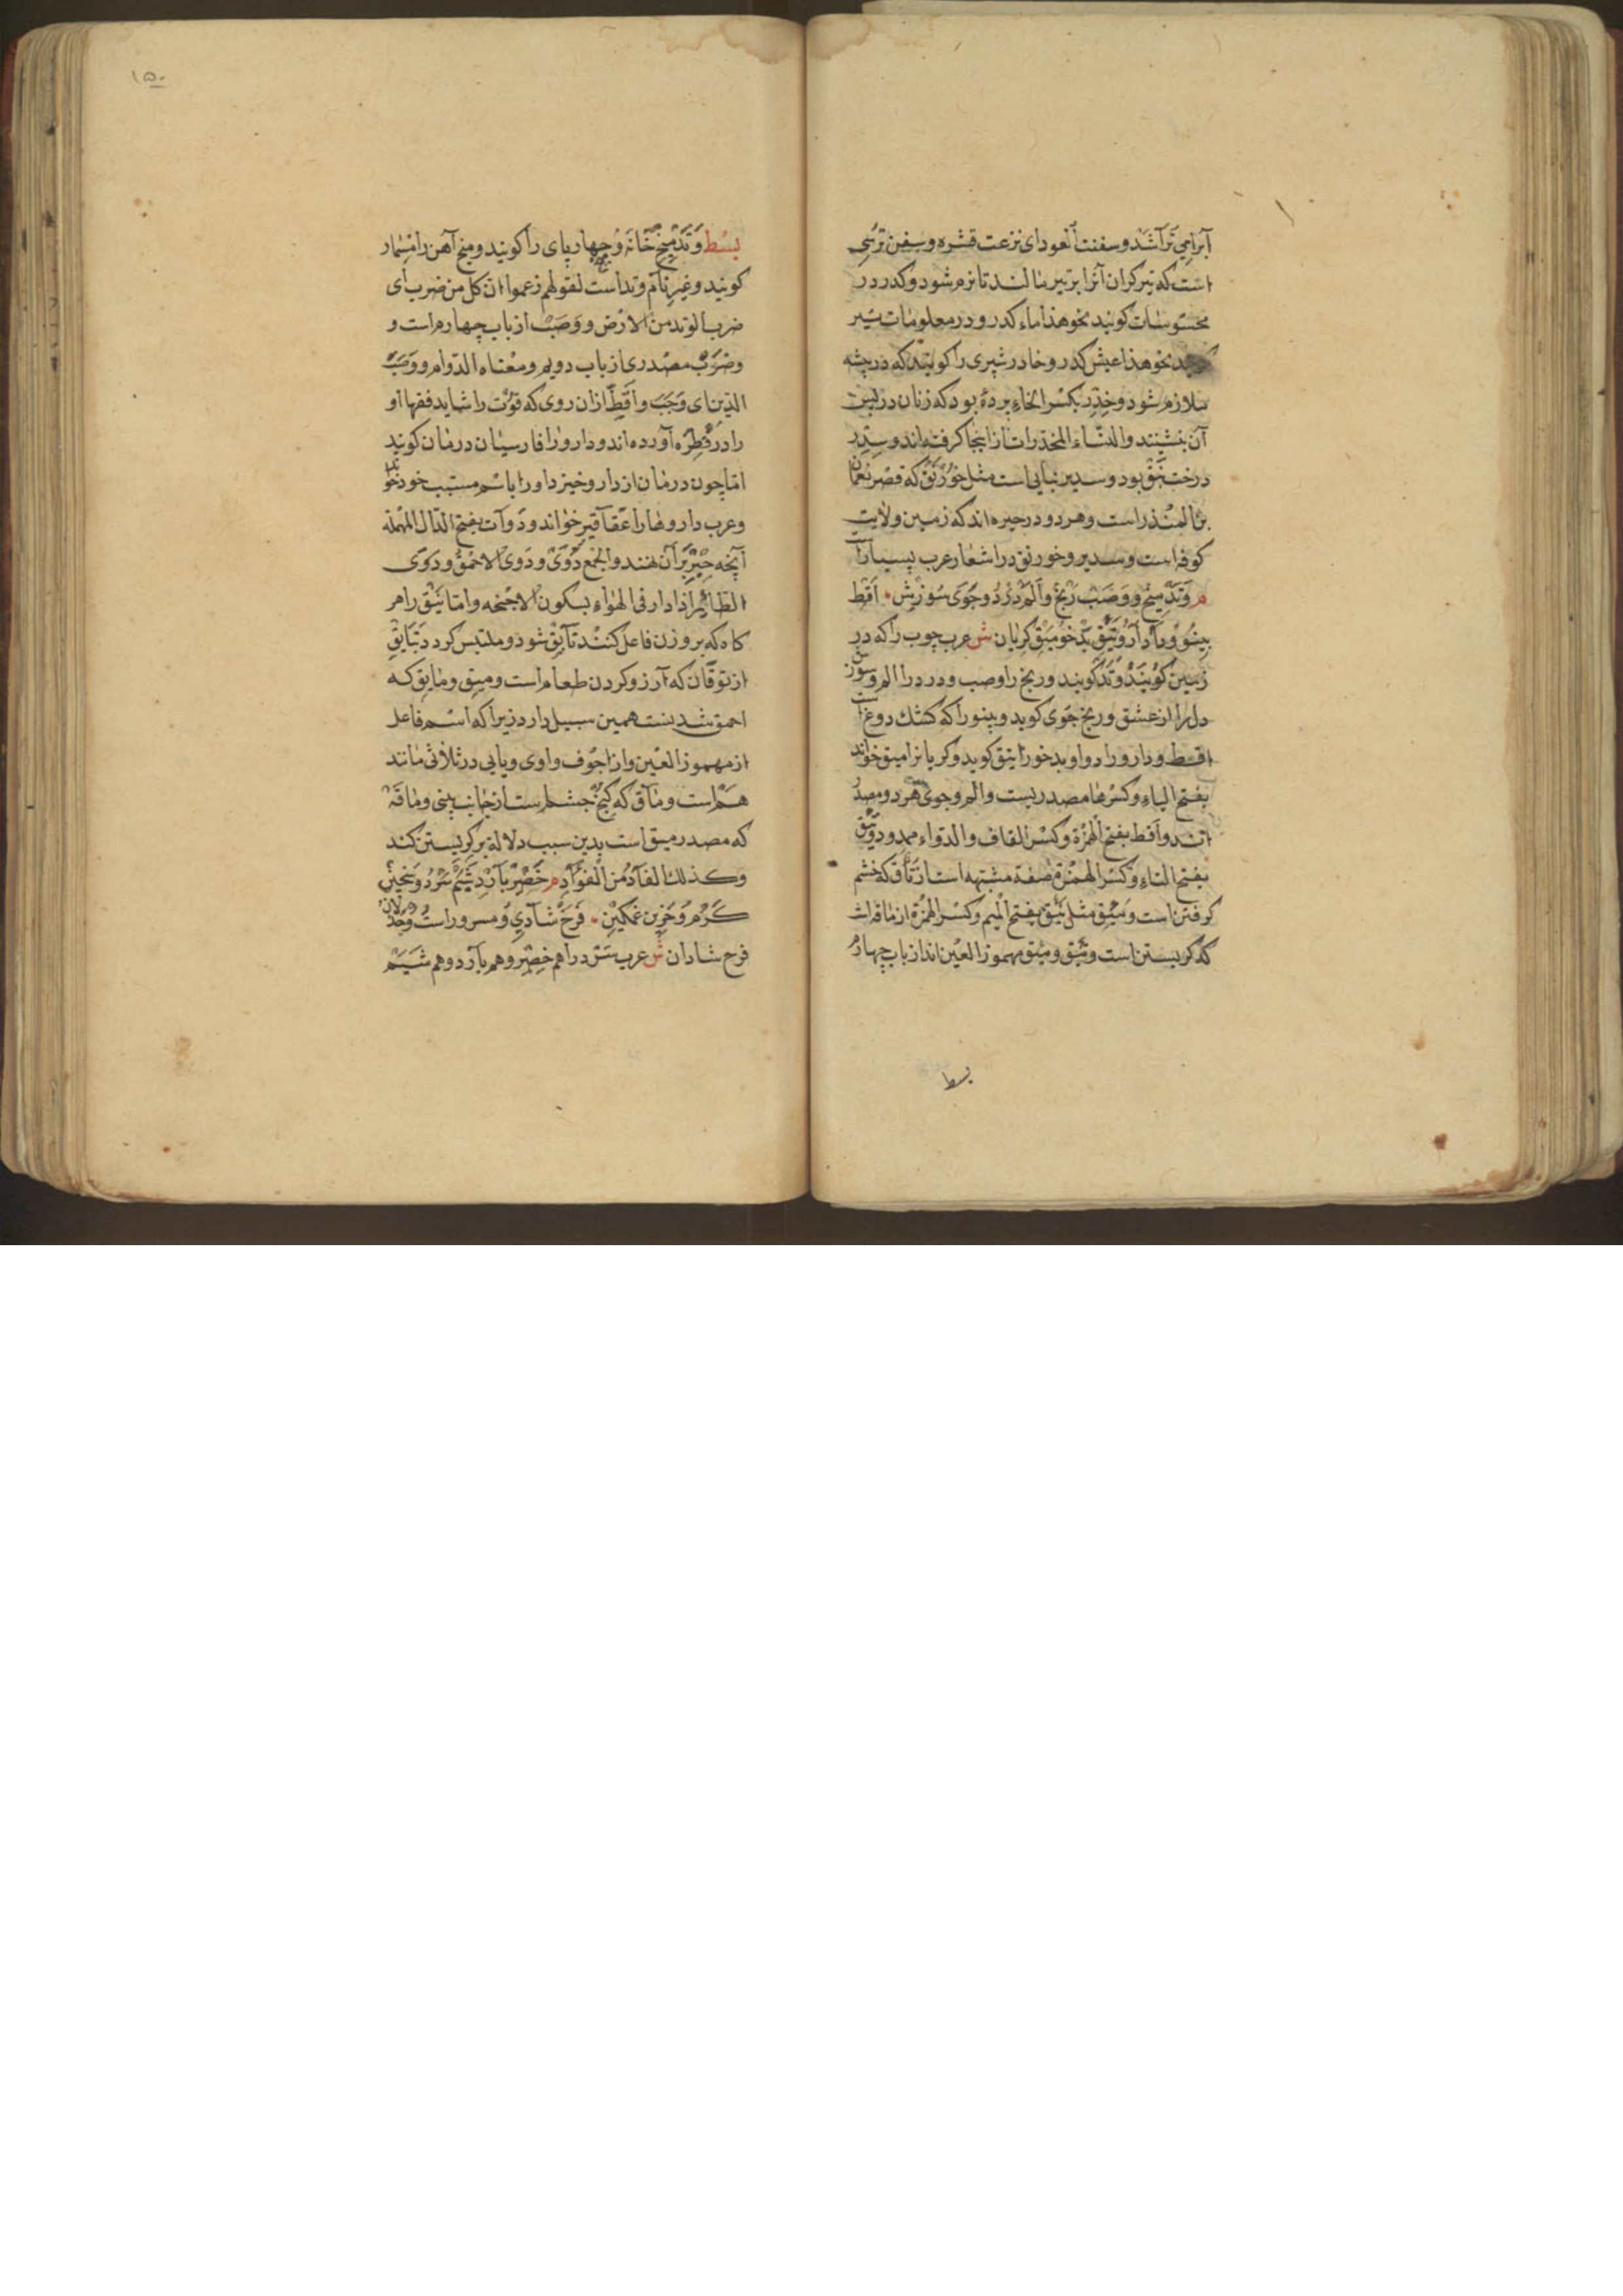 آبرا می تراشد و سفنت العود ای نزعت قشره و سفن ترسی
است که تیر کران آنرا بر تیر مالند تا نرم شود و کدر در
محسوسات کویند نحو هذا ماء کدر و در معلومات نیز
نحو هذا عیش کدر و خادر شیری را کویند که در بیشه
ملازم شود و خدر بکسر الخاء پردهٔ بود که زنان در پس
آن بنشینند و النساء المخدرات از اینجا کرفته اند و سدر
درخت نبق بود و سدیر بنایی است مثل خورنق که قصر نعمان
بن المنذر است و هر دو در حیره اند که زمین ولایت
کوفه است و سدیر و خورنق در اشعار عرب بسیار
م وتد میخ و وصب رنج و الم درد و جوی سوزش اقط
پینو و دارو تیق بدخو میق کریان ش عرب چوب را که در
زمین کویند وتد کویند و رنج را وصب و درد را الم و سوزش
دل را از عشق و رنج جوی کوید و پینو را که کشک دوغ است
اقط و دارو را دوا و بدخو را تیق کوید و کریانرا میق خواند
بفتح الیاء و کسرها مصدریست و الم و جوی هر دو مصدر
اند و اقط بفتح الهمزة و کسر القاف و الدواء ممدود و تئق
بفتح التاء و کسر الهمزة صفة مشبهه است از تأق که خشم
کرفتن است و مئق مثل تئق بفتح المیم و کسر الهمزة از ماقه است
که کریستن است و تئق و مئق مهموز العین اند از باب چهارم
بسط
۱۵۰
بسط وتد میخ خانه و چهار پای را کویند و میخ آهن را مسمار
کویند و غیر نام وتد است لقولهم زعموا ان کل من ضرب ای
ضرب الوتد من الارض و وصب از باب چهارم است و
وصوب مصدری از باب دویم و معناه الدوام و وصب
الدین ای وجب و اقط از آن روی که قوت را شاید فقها او
را در فطره آورده اند و دارو را فارسیان درمان کویند
اما چون درمان از دارو خیزد او را باسم مسبب خود خوانند
و عرب داروها را عقاقیر خواند و دوات بفتح الدال المهملة
آنچه حبر بر آن نهند و الجمع دوی و دوی الاحمق و دوی
الطائر اذا دار فی الهواء بسکون الاجنحه و اما تئق را هر
کاه که بر وزن فاعل کنند تائق شود و ملتبس کردد بتایق
از توقان که آرزو کردن طعام است و میق و مایق که
احمق شدنست همین سبیل دارد زیرا که اسم فاعل
از مهموز العین و از اجوف واوی و یایی در ثلاثی مانند
هم است و مآق که کنج چشم است از جانب بینی و ماقة
که مصدر میق است بدین سبب دلالة بر کریستن کند
وکذلك الفآد من الفواد م خصر بآرد شبم سرد و سخین
کرم و حزین غمکین فرح شادی و مسرور است و جذلان
فرح شادان ش عرب سرد را هم خصر و هم بآرد و هم شبم